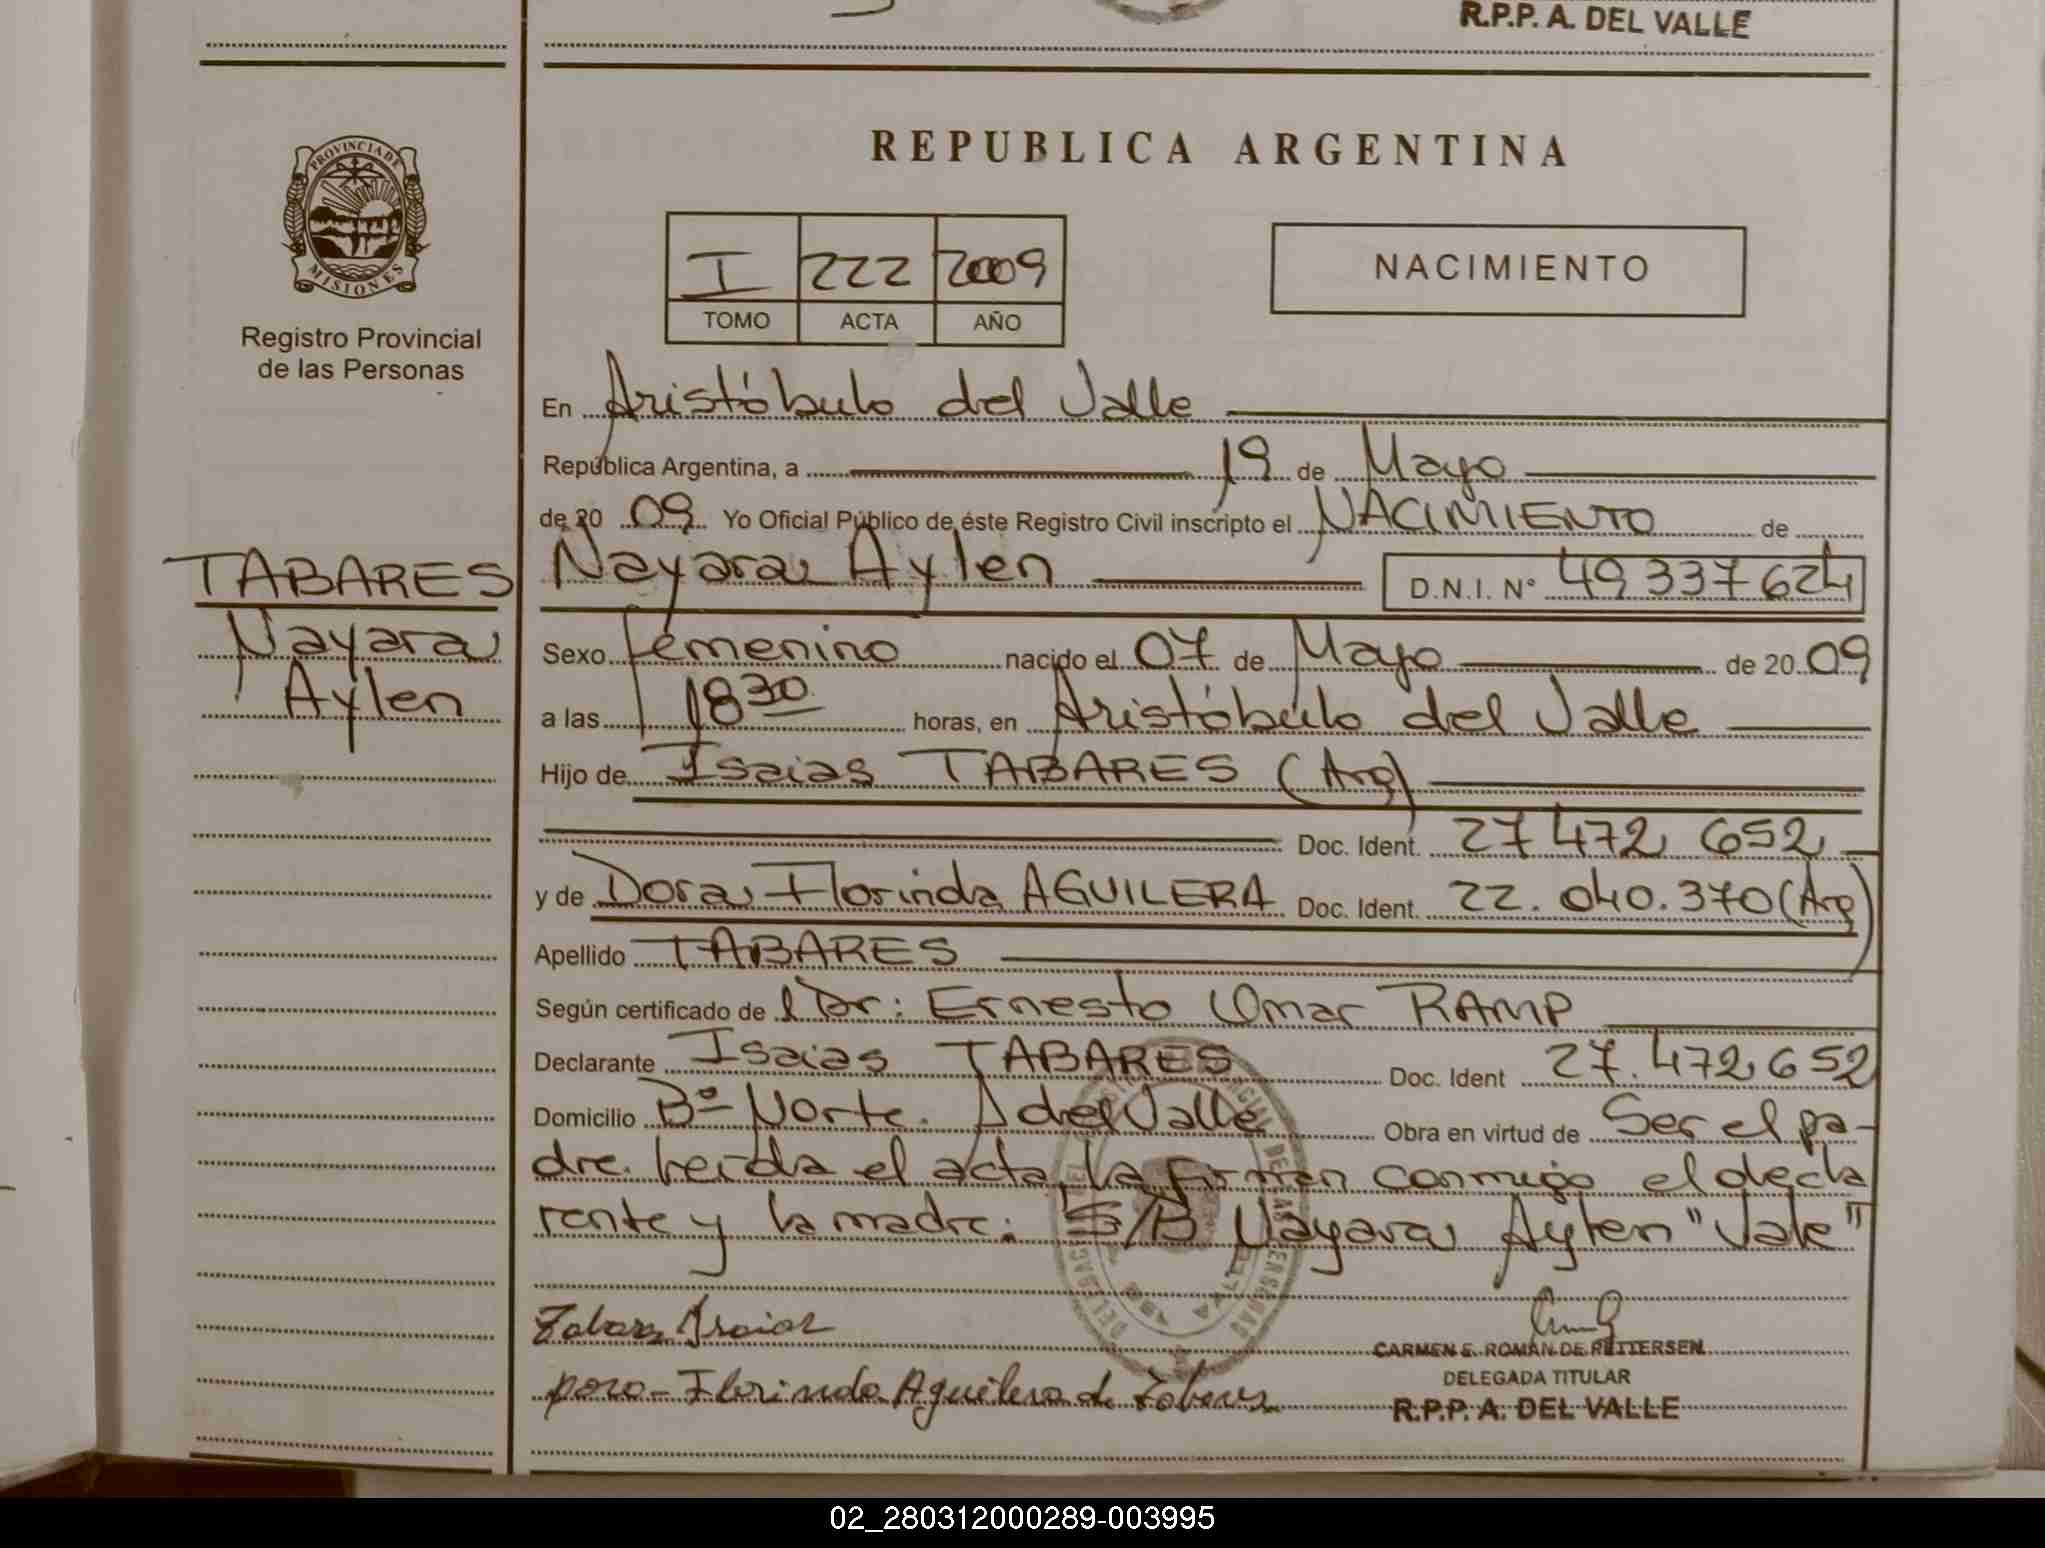 R.P.P. A. DEL VALLE
PROVINCIA DE
MISIONES
Registro Provincial
de las Personas
TABARES
Nayara
Aylen
REPUBLICA ARGENTINA
I 222 2009
TOMO ACTA AÑO
NACIMIENTO
En Aristóbulo del Valle
República Argentina, a 19 de Mayo
de 20 09 Yo Oficial Público de éste Registro Civil inscripto el NACIMIENTO de
Nayara Aylen D.N.I. N° 49337624
Sexo Femenino nacido el 07 de Mayo de 20 09
a las 18 30 horas, en Aristóbulo del Valle
Hijo de Isaias TABARES (Arg)
Doc. Ident. 27 472 652
y de Dora Florinda AGUILERA Doc. Ident. 22.040.370 (Arg)
Apellido TABARES
Según certificado de l Dr: Ernesto Omar RAMP
Declarante Isaias TABARES Doc. Ident 27.472652
Domicilio B° Norte. A del Valle Obra en virtud de Ser el pa-
dre. Leida el acta, la firman conmigo el decla
rante y la madre: S/B Nayara Aylen "Vale"
Isaias
Florinda Aguilera de
CARMEN E. ROMÁN DE PETTERSEN
DELEGADA TITULAR
R.P.P. A. DEL VALLE
02_280312000289-003995